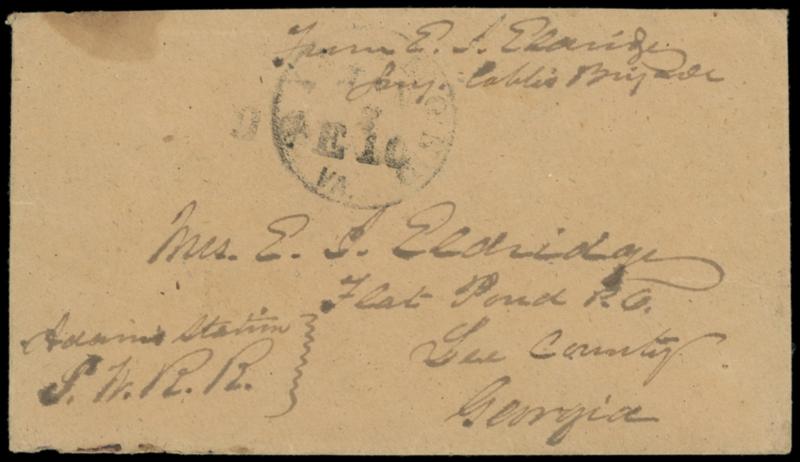 From E. J. Eldridge
Surg. Cobb's Brigade
DUE 10
VA.
Mrs. E. J. Eldridge
Flat Pond P.O.
Lee County
Georgia
Adams Station
S. W. R. R.